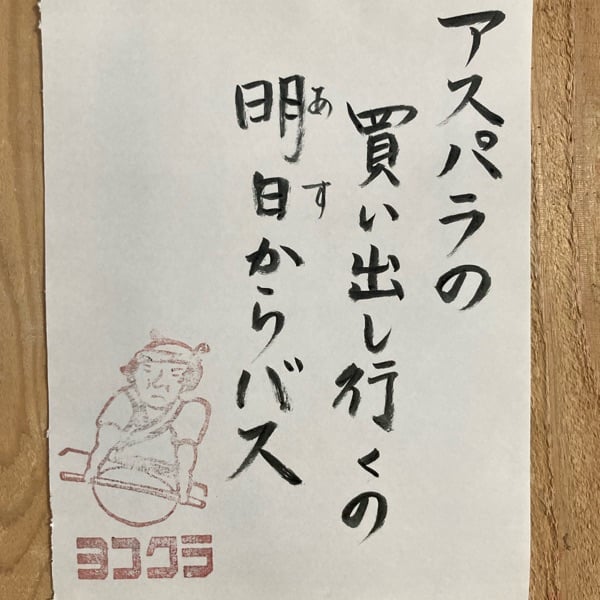 アスパラの
買い出し行くの
明日からバス
あす
ヨコクラ